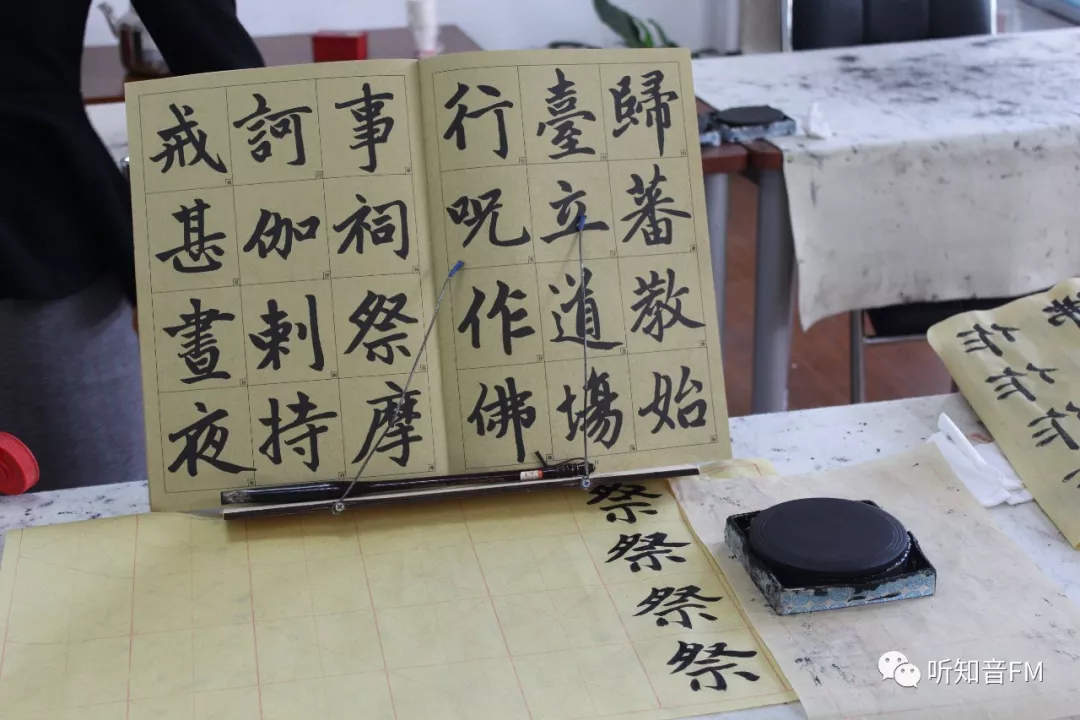 歸蕃教始
臺立道場
行呪作佛
事祠祭摩
訶伽剌持
戒甚晝夜
祭祭祭祭
佛
作作作
听知音FM